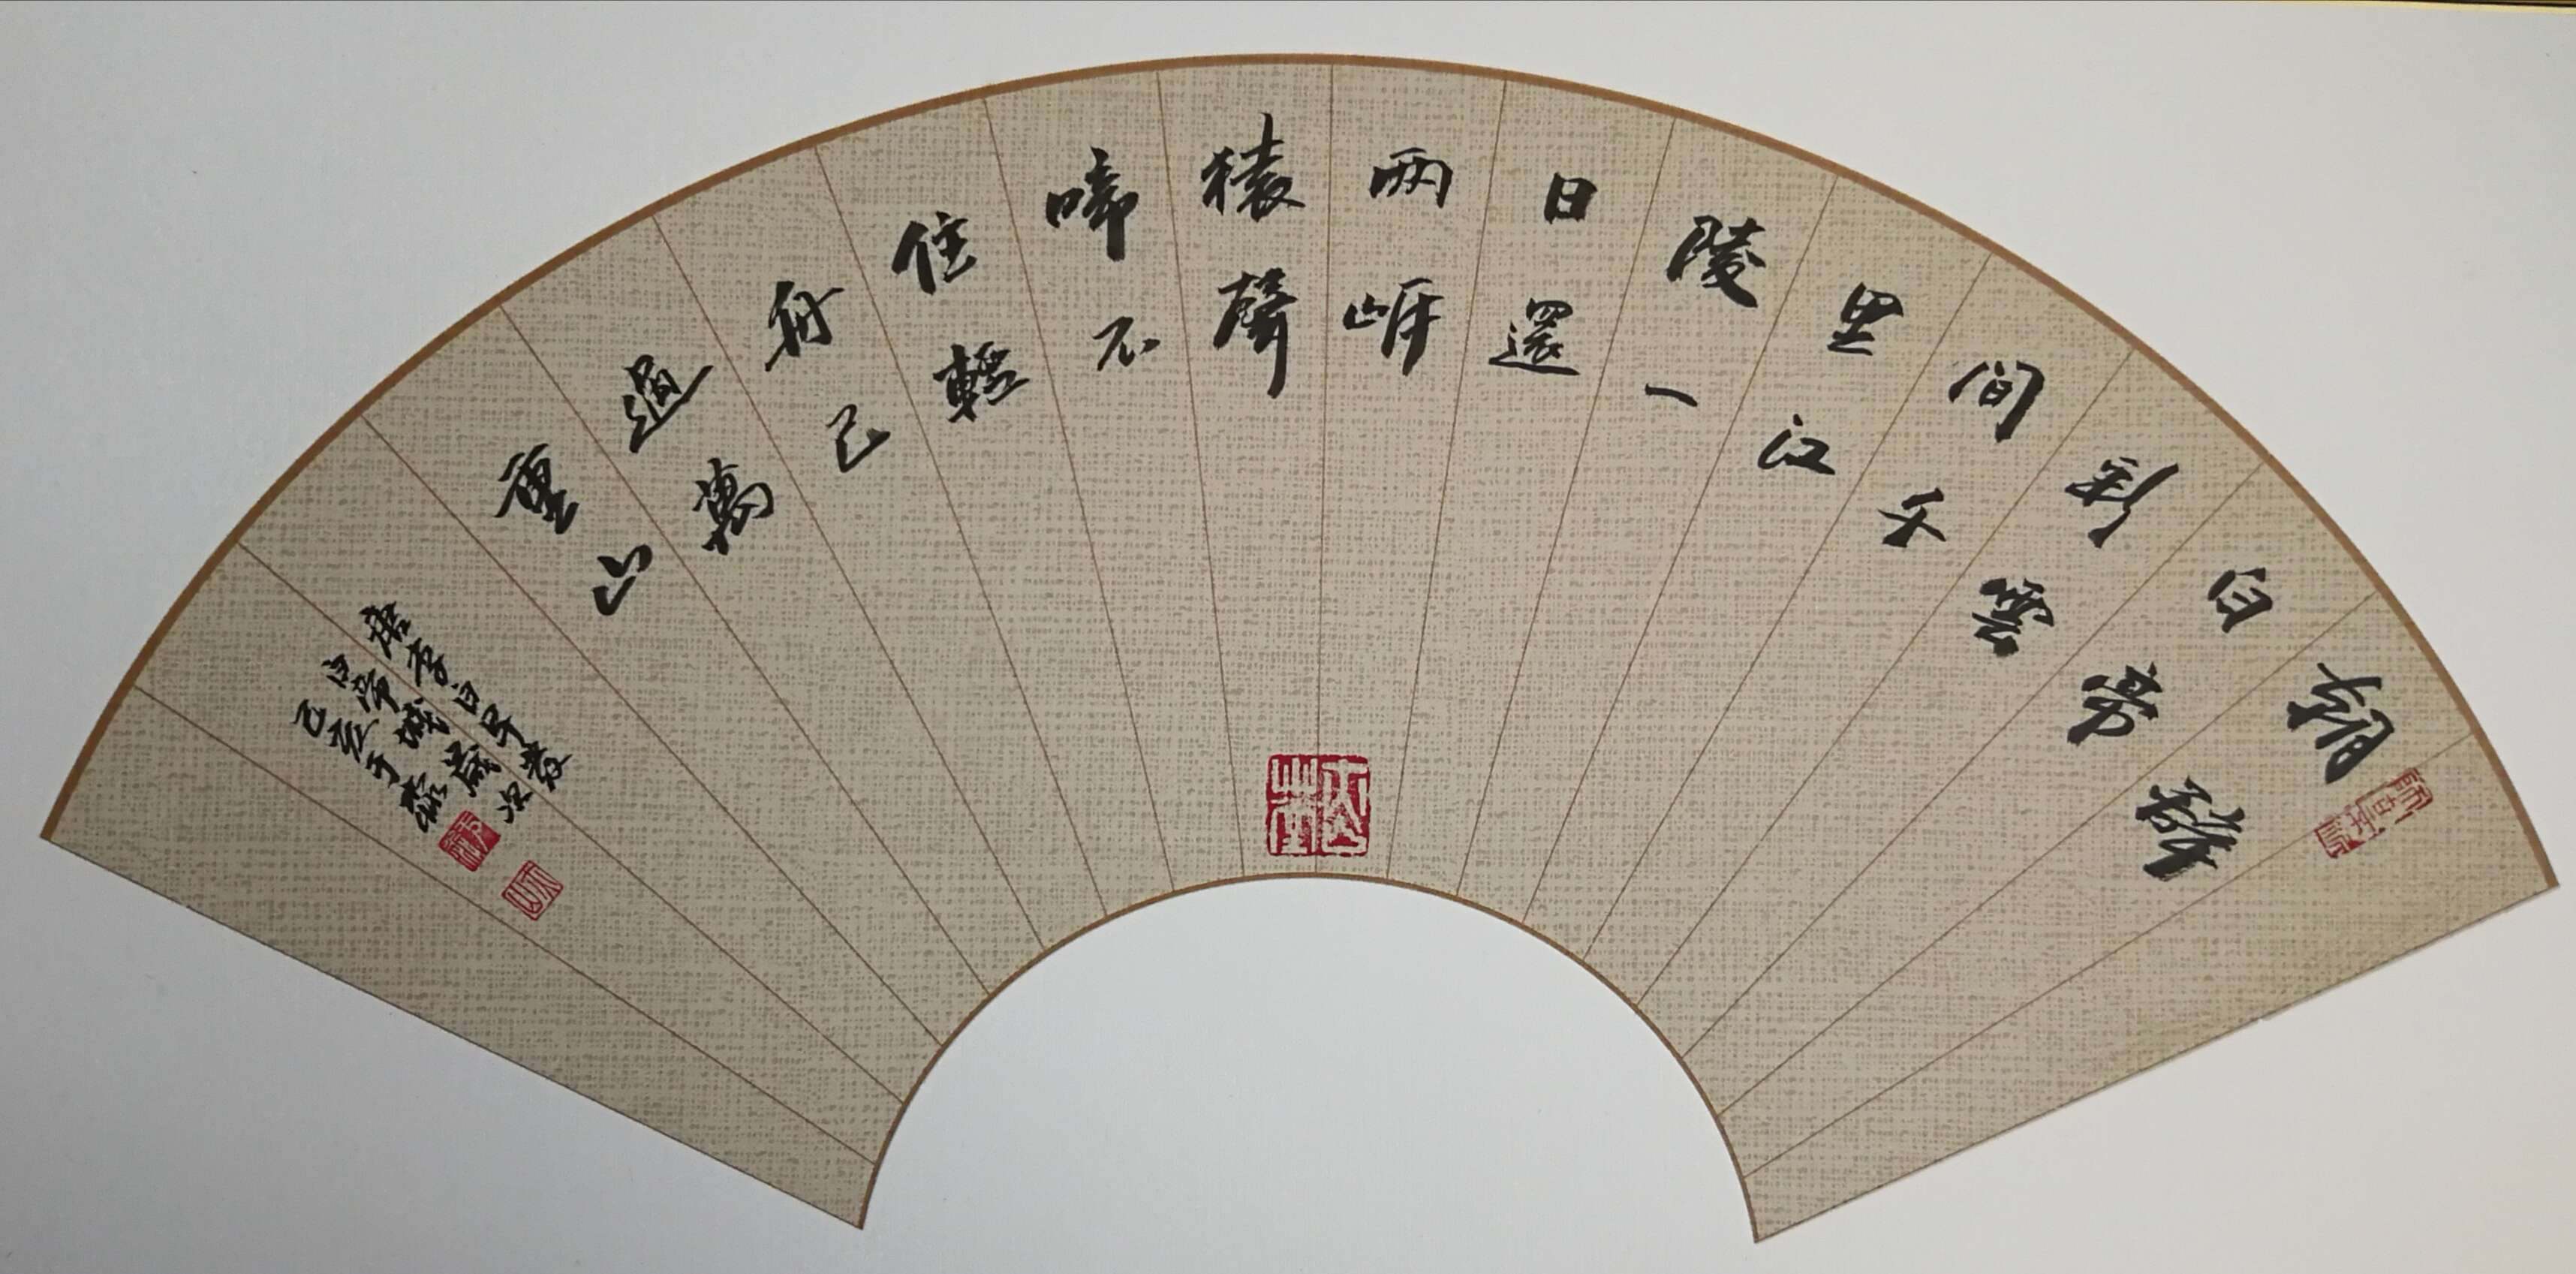 朝辭
白帝
彩雲
間千
里江
陵一
日還
兩岸
猿聲
啼不
住輕
舟已
過萬
重山
唐李白早發
白帝城歲次
己亥于